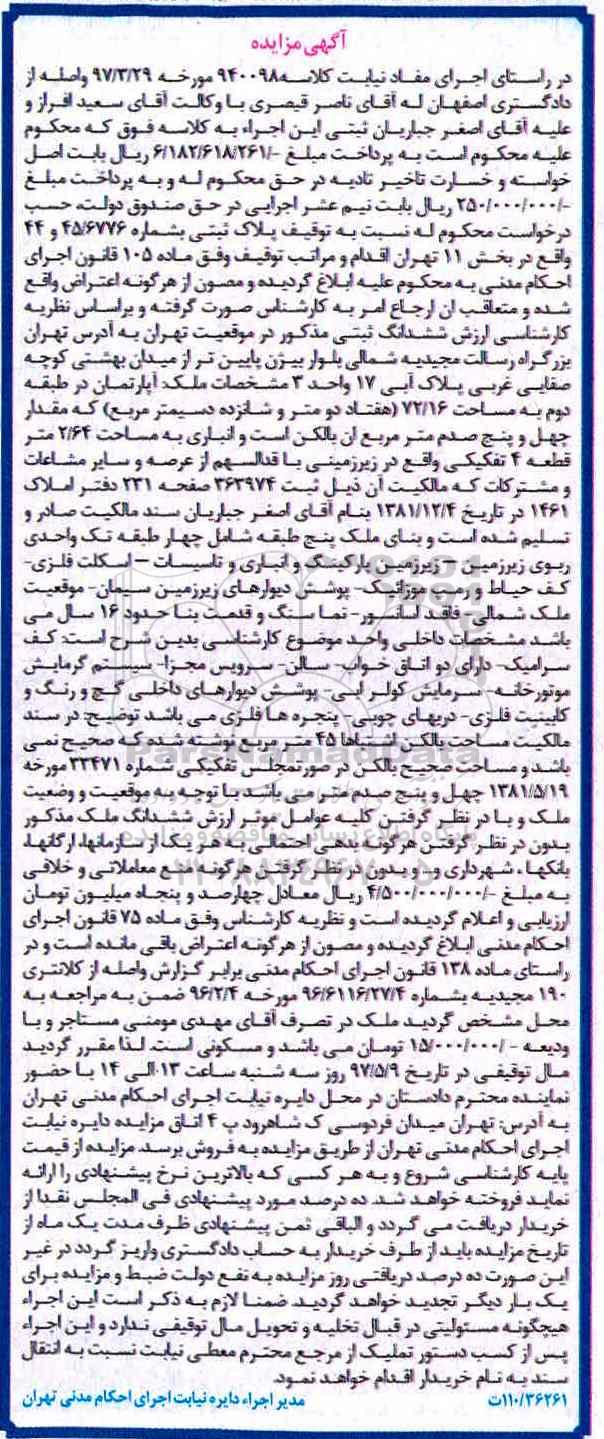 آگهی مزایده
در راستای اجرای مفاد نیابت کلاسه ۹۴۰۰۹۸ مورخه ۹۷/۳/۲۹ واصله از
دادگستری اصفهان له آقای ناصر قیصری با وکالت آقای سعید افراز و
علیه آقای اصغر جباریان ثبتی این اجراء به کلاسه فوق که محکوم
علیه محکوم است به پرداخت مبلغ -/۶/۱۸۲/۶۱۸/۲۶۱ ریال بابت اصل
خواسته و خسارت تاخیر تادیه در حق محکوم له و به پرداخت مبلغ
-/۲۵۰/۰۰۰/۰۰۰ ریال بابت نیم عشر اجرایی در حق صندوق دولت، حسب
درخواست محکوم له نسبت به توقیف پلاک ثبتی بشماره ۴۵/۶۷۷۶ و ۴۴
واقع در بخش ۱۱ تهران اقدام و مراتب توقیف وفق ماده ۱۰۵ قانون اجرای
احکام مدنی به محکوم علیه ابلاغ گردیده و مصون از هرگونه اعتراض واقع
شده و متعاقب ان ارجاع امر به کارشناس صورت گرفته و براساس نظریه
کارشناسی ارزش ششدانگ ثبتی مذکور در موقعیت تهران به آدرس تهران
بزرگراه رسالت مجیدیه شمالی بلوار بیژن پایین تر از میدان بهشتی کوچه
صفایی غربی پلاک آبی ۱۷ واحد ۳ مشخصات ملک: آپارتمان در طبقه
دوم به مساحت ۷۲/۱۶ (هفتاد دو متر و شانزده دسیمتر مربع) که مقدار
چهل و پنج صدم متر مربع ان بالکن است و انباری به مساحت ۲/۶۴ متر
قطعه ۴ تفکیکی واقع در زیرزمینی با قدالسهم از عرصه و سایر مشاعات
و مشترکات که مالکیت آن ذیل ثبت ۳۶۳۹۷۴ صفحه ۲۳۱ دفتر املاک
۱۴۶۱ در تاریخ ۱۳۸۱/۱۲/۴ بنام آقای اصغر جباریان سند مالکیت صادر و
تسلیم شده است و بنای ملک پنج طبقه شامل چهار طبقه تک واحدی
بروی زیرزمین – زیرزمین پارکینگ و انباری و تاسیسات – اسکلت فلزی-
کف حیاط و رمپ موزائیک- پوشش دیوارهای زیرزمین سیمان- موقعیت
ملک شمالی- فاقد آسانسور- نما سنگ و قدمت بنا حدود ۱۶ سال می
باشد مشخصات داخلی واحد موضوع کارشناسی بدین شرح است: کف
سرامیک- دارای دو اتاق خواب- سالن- سرویس مجزا- سیستم گرمایش
موتورخانه- سرمایش کولر آبی- پوشش دیوارهای داخلی گچ و رنگ و
کابینت فلزی- دربهای چوبی- پنجره ها فلزی می باشد توضیح: در سند
مالکیت مساحت بالکن اشتباها ۴۵ متر مربع نوشته شده که صحیح نمی
باشد و مساحت صحیح بالکن در صورتمجلس تفکیکی شماره ۳۳۴۷۱ مورخه
۱۳۸۱/۵/۱۹ چهل و پنج صدم متر می باشد با توجه به موقعیت و وضعیت
ملک و با در نظر گرفتن کلیه عوامل موثر ارزش ششدانگ ملک مذکور
بدون در نظر گرفتن هرگونه بدهی احتمالی به هر یک از سازمانها، ارگانها،
بانکها، شهرداری و... و بدون در نظر گرفتن هرگونه منع معاملاتی و خلافی
به مبلغ -/۴/۵۰۰/۰۰۰/۰۰۰ ریال معادل چهارصد و پنجاه میلیون تومان
ارزیابی و اعلام گردیده است و نظریه کارشناس وفق ماده ۷۵ قانون اجرای
احکام مدنی ابلاغ گردیده و مصون از هرگونه اعتراض باقی مانده است و در
راستای ماده ۱۳۸ قانون اجرای احکام مدنی برابر گزارش واصله از کلانتری
۱۹۰ مجیدیه بشماره ۹۶/۶۱۱۶/۲۷/۴ مورخه ۹۶/۲/۴ ضمن به مراجعه به
محل مشخص گردید ملک در تصرف آقای مهدی مومنی مستاجر و با
ودیعه -/۱۵/۰۰۰/۰۰۰ تومان می باشد و مسکونی است. لذا مقرر گردید
مال توقیفی در تاریخ ۹۷/۵/۹ روز سه شنبه ساعت ۱۳ الی ۱۴ با حضور
نماینده محترم دادستان در محل دایره نیابت اجرای احکام مدنی تهران
به آدرس: تهران میدان فردوسی ک شاهرود پ ۴ اتاق مزایده دایره نیابت
اجرای احکام مدنی تهران از طریق مزایده به فروش برسد. مزایده از قیمت
پایه کارشناسی شروع و به هر کسی که بالاترین نرخ پیشنهادی را ارائه
نماید فروخته خواهد شد. ده درصد مورد پیشنهادی فی المجلس نقدا از
خریدار دریافت می گردد و الباقی ثمن پیشنهادی ظرف مدت یک ماه از
تاریخ مزایده باید از طرف خریدار به حساب دادگستری واریز گردد در غیر
این صورت ده درصد دریافتی روز مزایده به نفع دولت ضبط و مزایده برای
یک بار دیگر تجدید خواهد گردید. ضمنا لازم به ذکر است این اجراء
هیچگونه مسئولیتی در قبال تخلیه و تحویل مال توقیفی ندارد و این اجراء
پس از کسب دستور تملیک از مرجع محترم معطی نیابت نسبت به انتقال
سند به نام خریدار اقدام خواهد نمود.
۱۱۰/۳۶۲۶۱ت مدیر اجراء دایره نیابت اجرای احکام مدنی تهران
ParsNamadData
پایگاه اطلاع رسانی مناقصه و مزایده